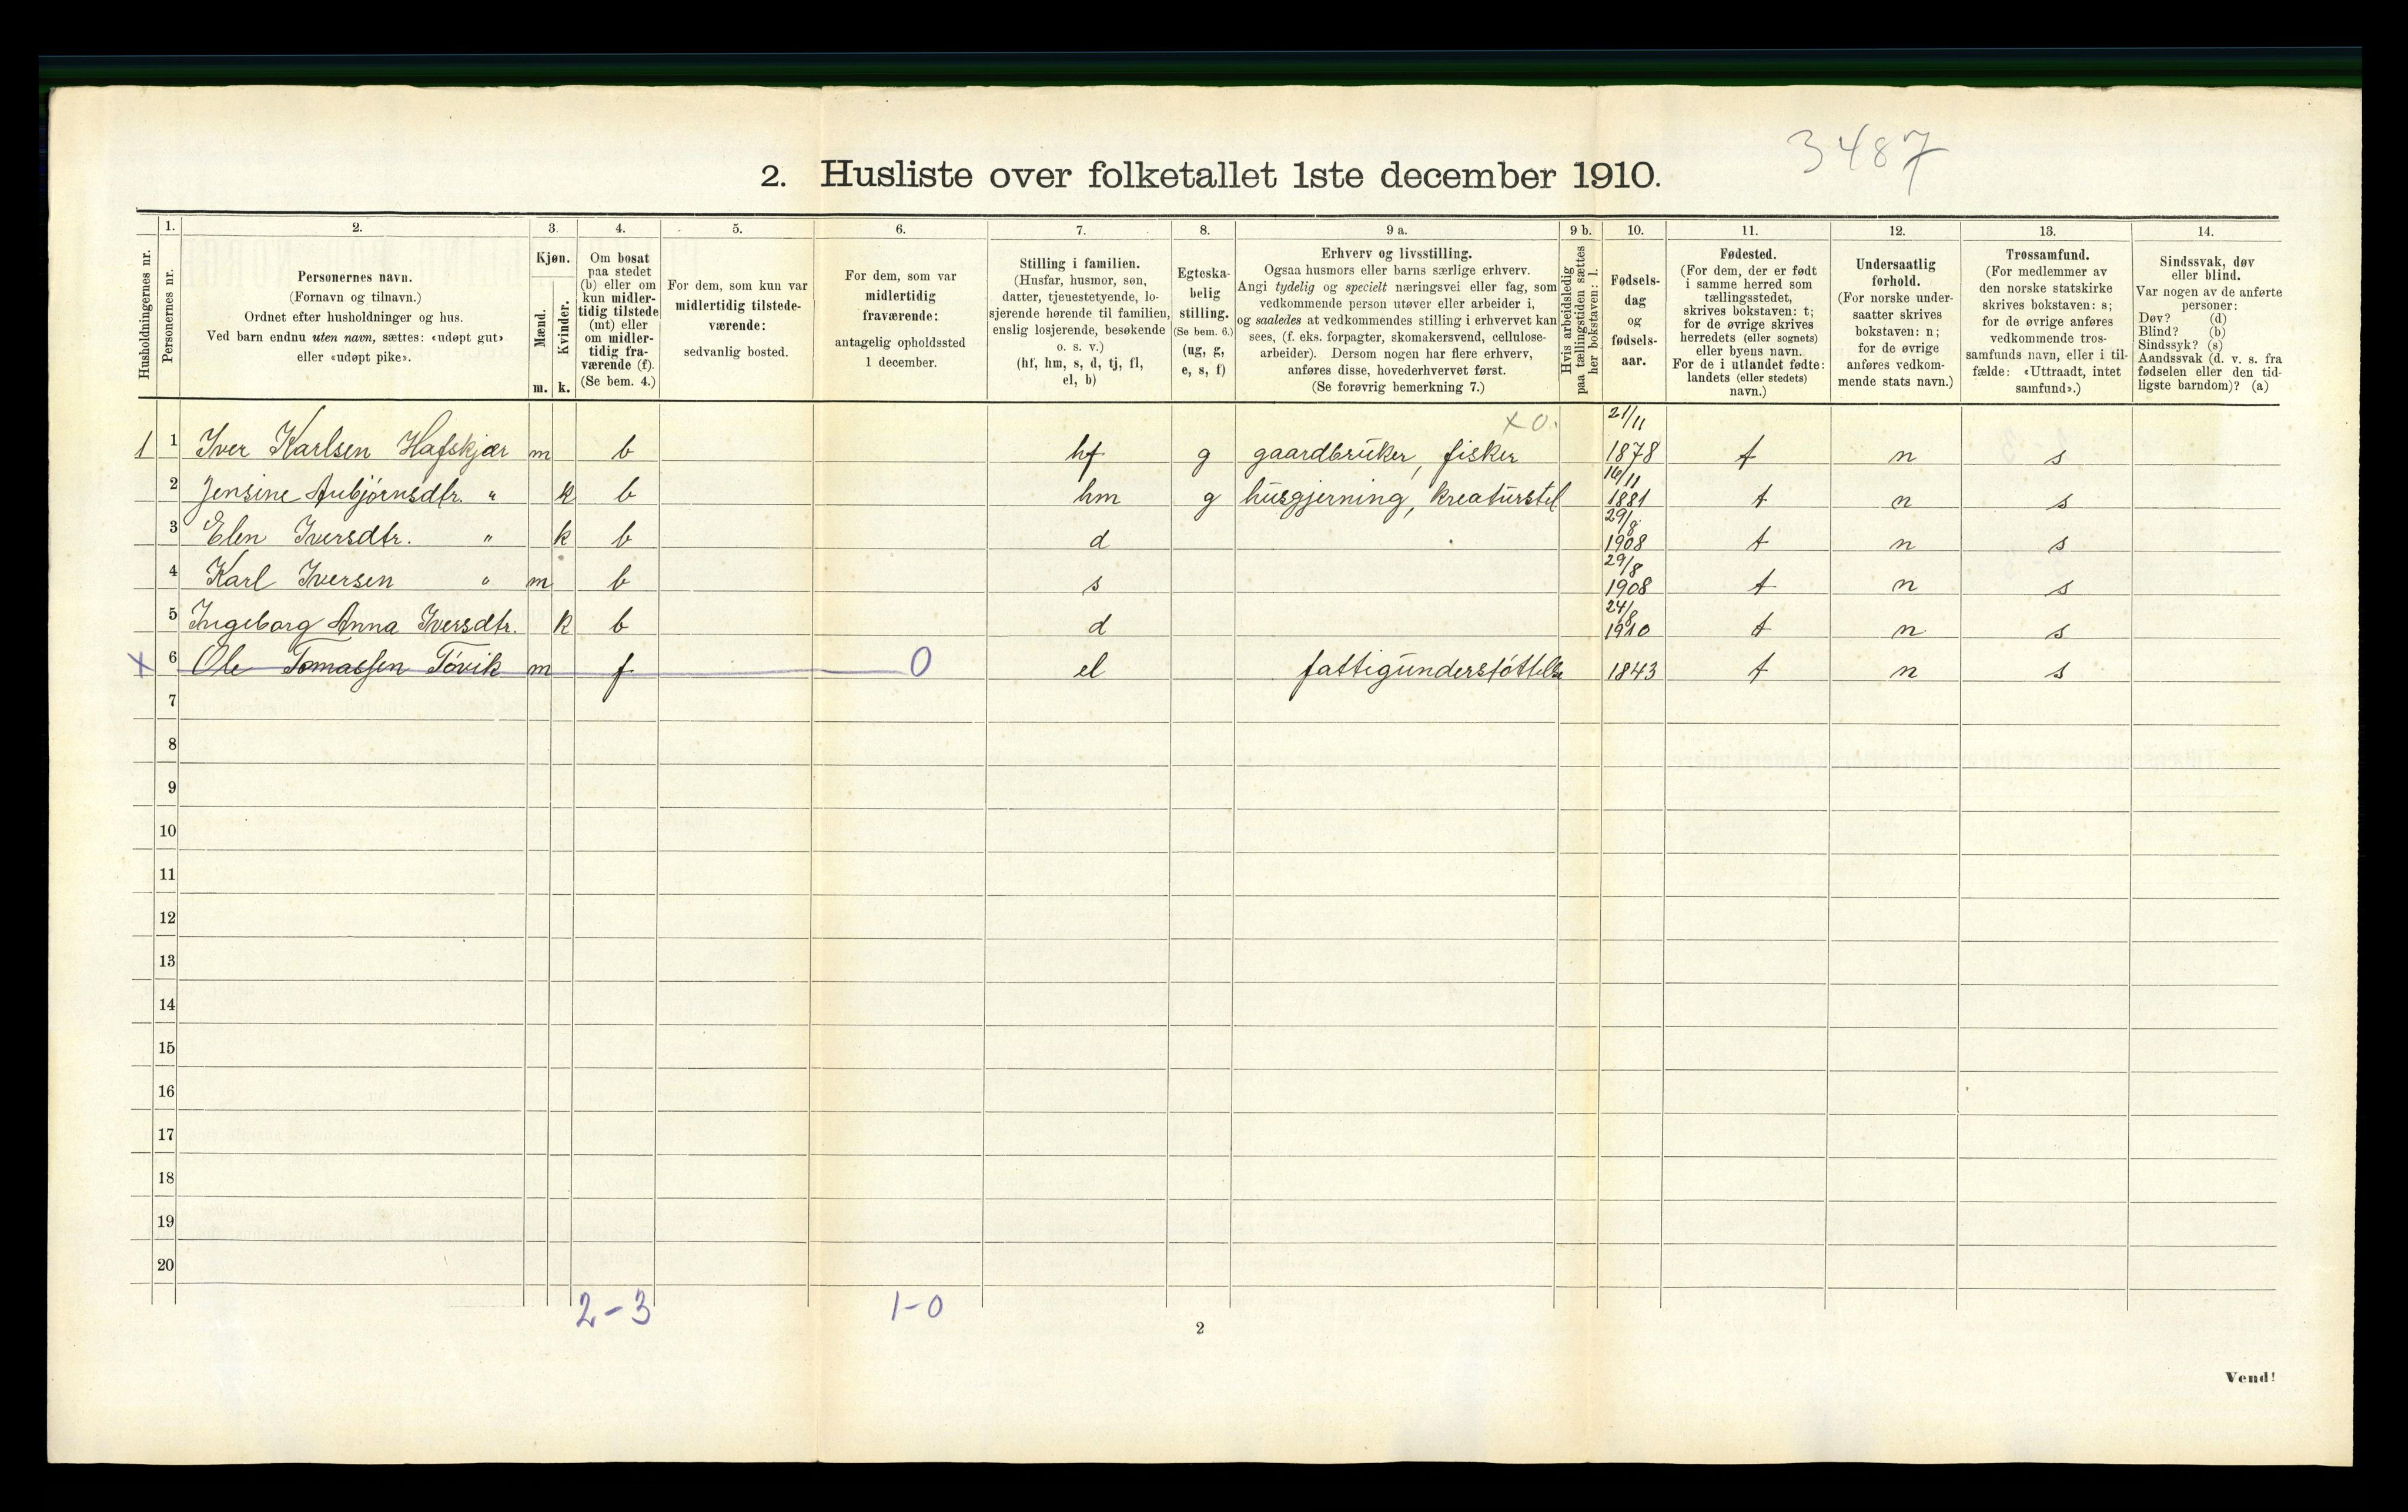 3487
2. Husliste over folketallet 1ste december 1910.
1. 2. 3. 4. 5. 6. 7. 8. 9 a. 9 b. 10. 11. 12. 13. 14.
Husholdningernes nr.
Personernes nr.
Personernes navn.
(Fornavn og tilnavn.)
Ordnet efter husholdninger og hus.
Ved barn endnu uten navn, sættes: «udøpt gut»
eller «udøpt pike».
Kjøn.
Mænd.
Kvinder.
m. k.
Om bosat
paa stedet
(b) eller om
kun midler-
tidig tilstede
(mt) eller
om midler-
tidig fra-
værende (f).
(Se bem. 4.)
For dem, som kun var
midlertidig tilstede-
værende:
sedvanlig bosted.
For dem, som var
midlertidig
fraværende:
antagelig opholdssted
1 december.
Stilling i familien.
(Husfar, husmor, søn,
datter, tjenestetyende, lo-
sjerende hørende til familien,
enslig losjerende, besøkende
o. s. v.)
(hf, hm, s, d, tj, fl,
el, b)
Egteska-
belig
stilling.
(Se bem. 6.)
(ug, g,
e, s, f)
Erhverv og livsstilling.
Ogsaa husmors eller barns særlige erhverv.
Angi tydelig og specielt næringsvei eller fag, som
vedkommende person utøver eller arbeider i,
og saaledes at vedkommendes stilling i erhvervet kan
sees, (f. eks. forpagter, skomakersvend, cellulose-
arbeider). Dersom nogen har flere erhverv,
anføres disse, hovederhvervet først.
(Se forøvrig bemerkning 7.)
Hvis arbeidsledig
paa tællingstiden sættes
her bokstaven: l.
Fødsels-
dag
og
fødsels-
aar.
Fødested.
(For dem, der er født
i samme herred som
tællingsstedet,
skrives bokstaven: t;
for de øvrige skrives
herredets (eller sognets)
eller byens navn.
For de i utlandet fødte:
landets (eller stedets)
navn.)
Undersaatlig
forhold.
(For norske under-
saatter skrives
bokstaven: n;
for de øvrige
anføres vedkom-
mende stats navn.)
Trossamfund.
(For medlemmer av
den norske statskirke
skrives bokstaven: s;
for de øvrige anføres
vedkommende tros-
samfunds navn, eller i til-
fælde: «Uttraadt, intet
samfund».)
Sindssvak, døv
eller blind.
Var nogen av de anførte
personer:
Døv? (d)
Blind? (b)
Sindssyk? (s)
Aandssvak (d. v. s. fra
fødselen eller den tid-
ligste barndom)? (a)
x 0. 21/11
1 1 Iver Karlsen Hafskjær m b hf g gaardbruker, fisker 1878 t n s
16/11
2 Jensine Anbjørnsdtr. " k b hm g husgjerning, kreaturstel 1881 t n s
29/8
3 Elen Iversdtr. " k b d 1908 t n s
29/8
4 Karl Iversen " m b s 1908 t n s
24/8
5 Ingeborg Anna Iversdtr. k b d 1910 t n s
x 6 Ole Tomassen Tøvik m f 0 el fattigunderstøttelse 1843 t n s
7
8
9
10
11
12
13
14
15
16
17
18
19
20
2-3 1-0
2
Vend!